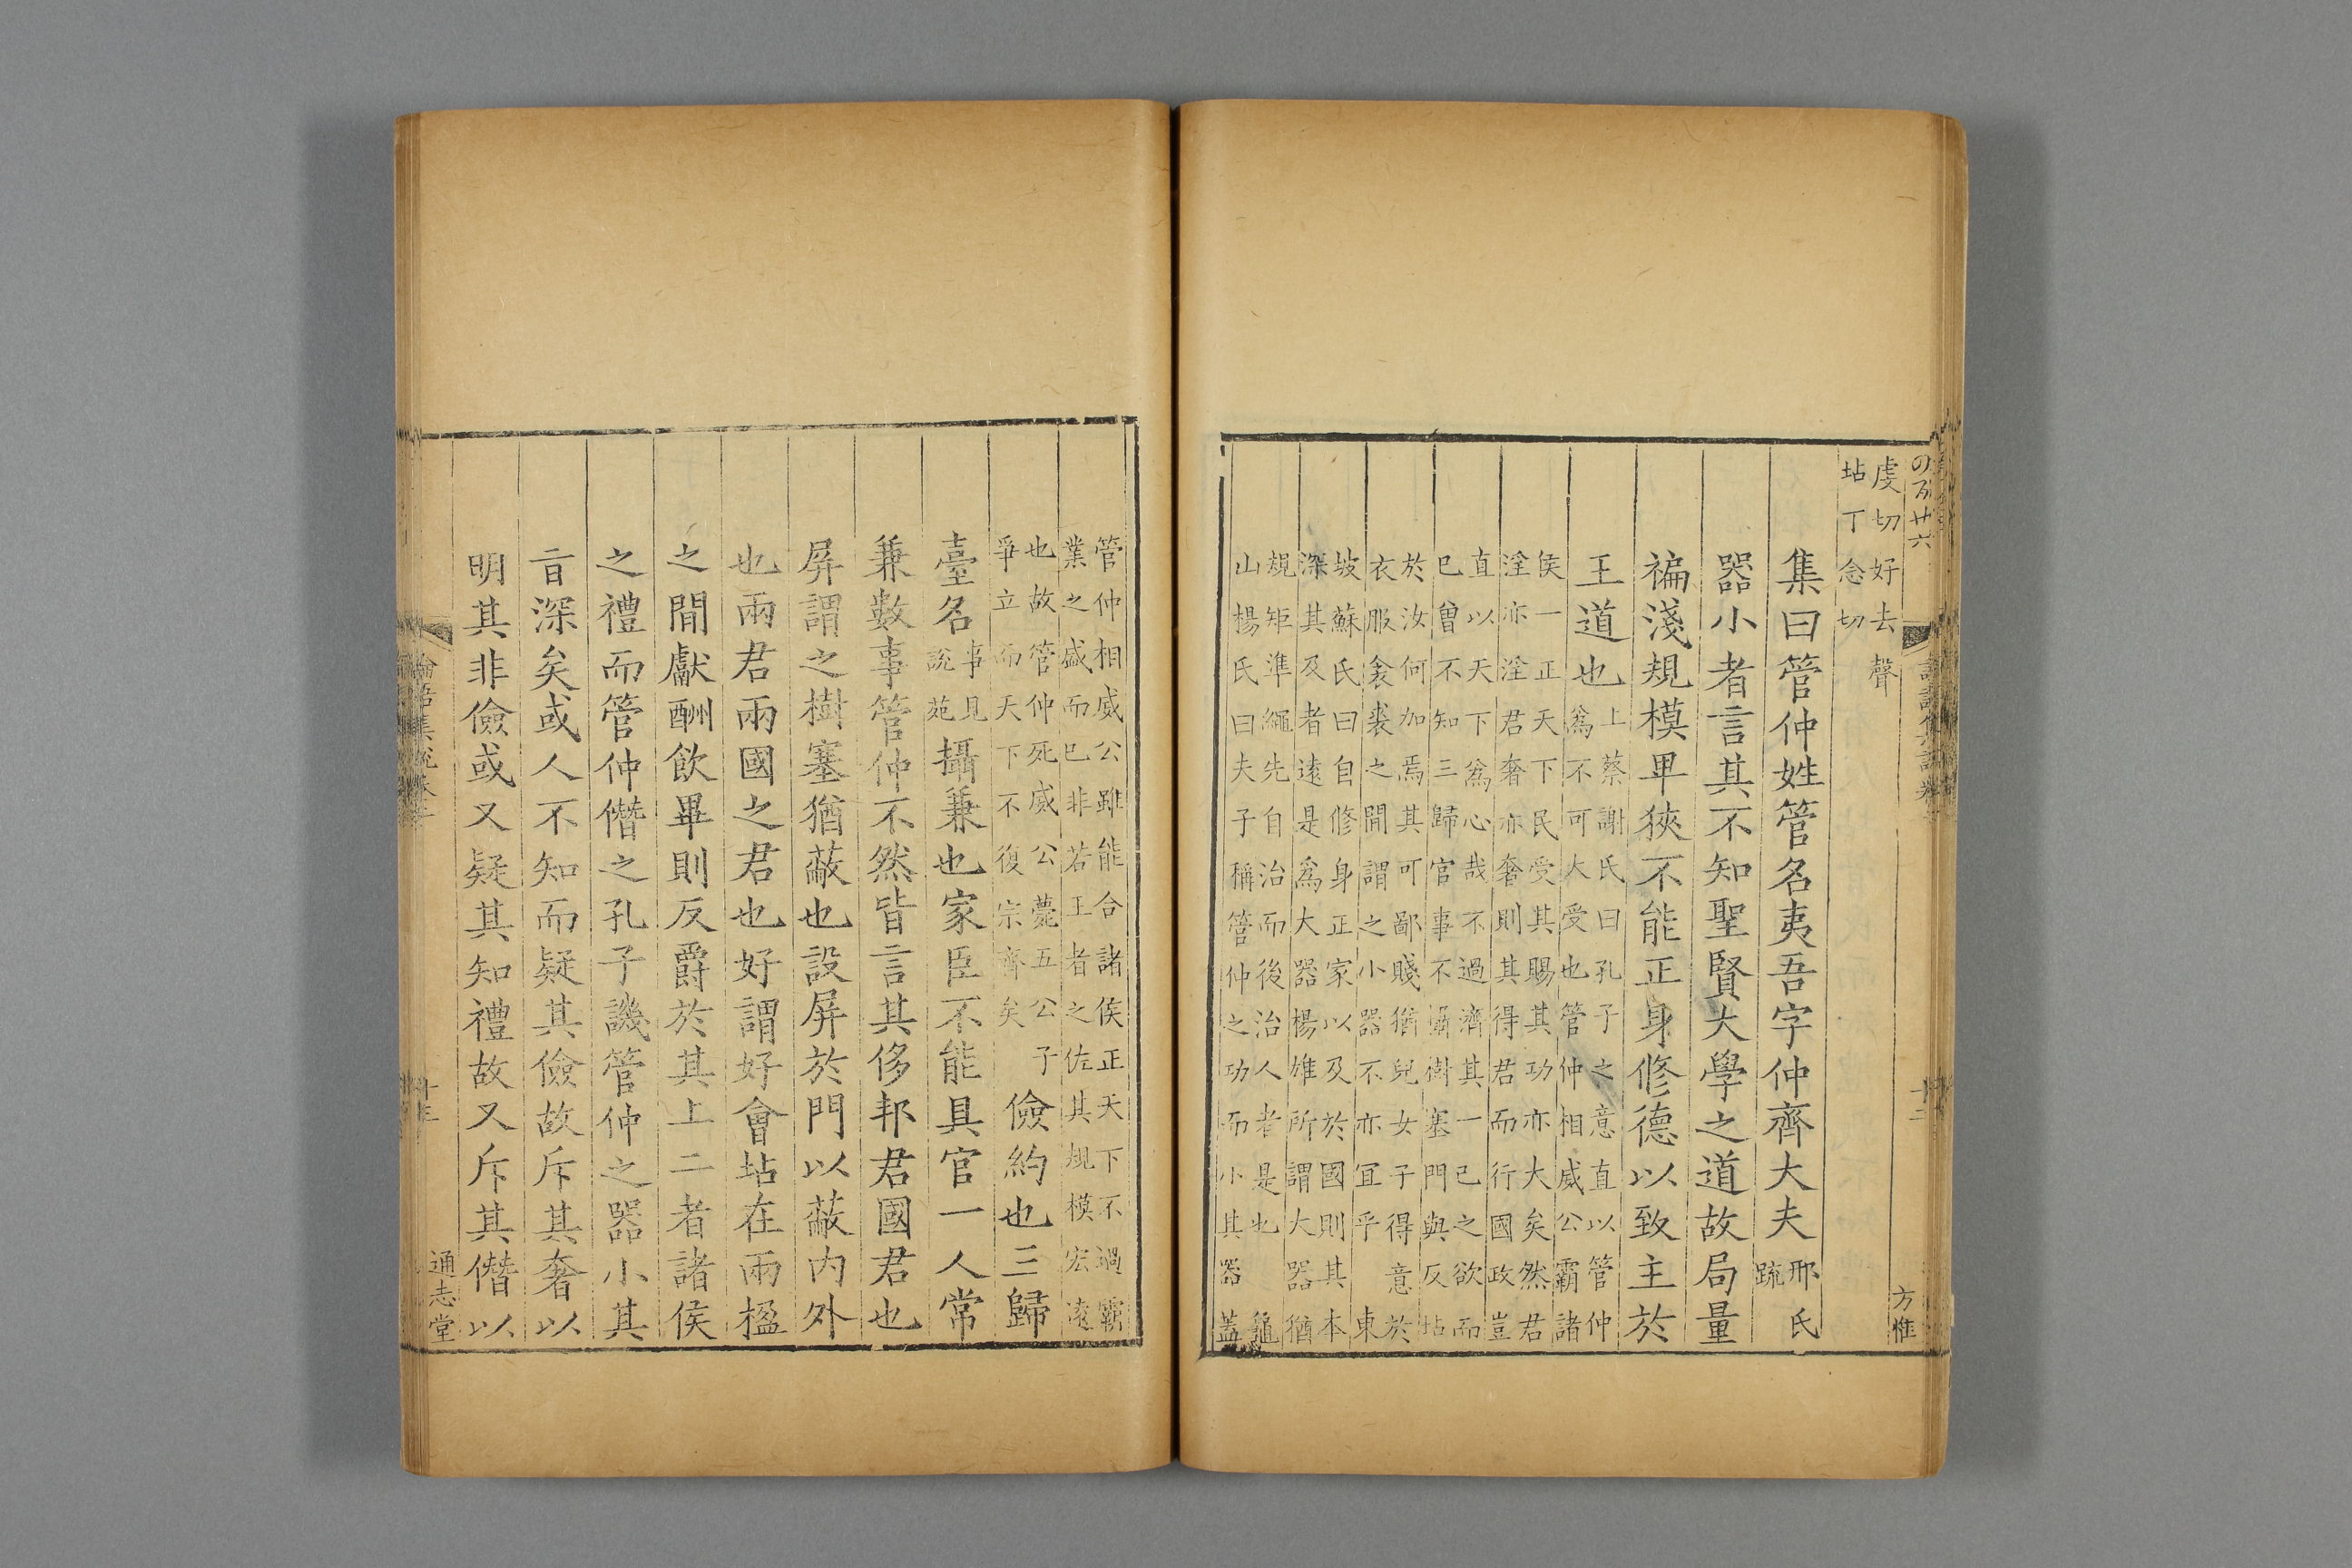 四百廿六
十二
方惟
虔切好去聲
坫丁念切
集曰管仲姓管名夷吾字仲齊大夫邢氏疏
器小者言其不知聖賢大學之道故局量
褊淺規模卑狹不能正身修德以致主於
王道也上蔡謝氏曰孔子之意直以管仲
爲不可大受也管仲相威公霸諸
侯一正天下民受其賜其功亦大矣然君
淫亦淫君奢亦奢則其得君而行國政豈
直以天下爲心哉不過濟其一已之欲而
已曾不知三歸官事不攝樹塞門與反坫
於汝何加焉其可鄙賤猶兒女子得意於
衣服衾裘之間謂之小器不亦宜乎東
坡蘇氏曰自修身正家以及於國則其本
深其及者遠是爲大器楊雄所謂大器猶
規矩準繩先自治而後治人者是也龜
山楊氏曰夫子稱管仲之功而小其器蓋
管仲相威公雖能合諸侯正天下不過霸
業之盛而已非若王者之佐其規模宏遠
也故管仲死威公薨五公子
爭立而天下不復宗齊矣儉約也三歸
臺名事見說苑攝兼也家臣不能具官一人常
兼數事管仲不然皆言其侈邦君國君也
屏謂之樹塞猶蔽也設屏於門以蔽内外
也兩君兩國之君也好謂好會坫在兩楹
之間獻酬飲畢則反爵於其上二者諸侯
之禮而管仲僭之孔子譏管仲之器小其
旨深矣或人不知而疑其儉故斥其奢以
明其非儉或又疑其知禮故又斥其僭以
論語集說卷二
十三
通志堂